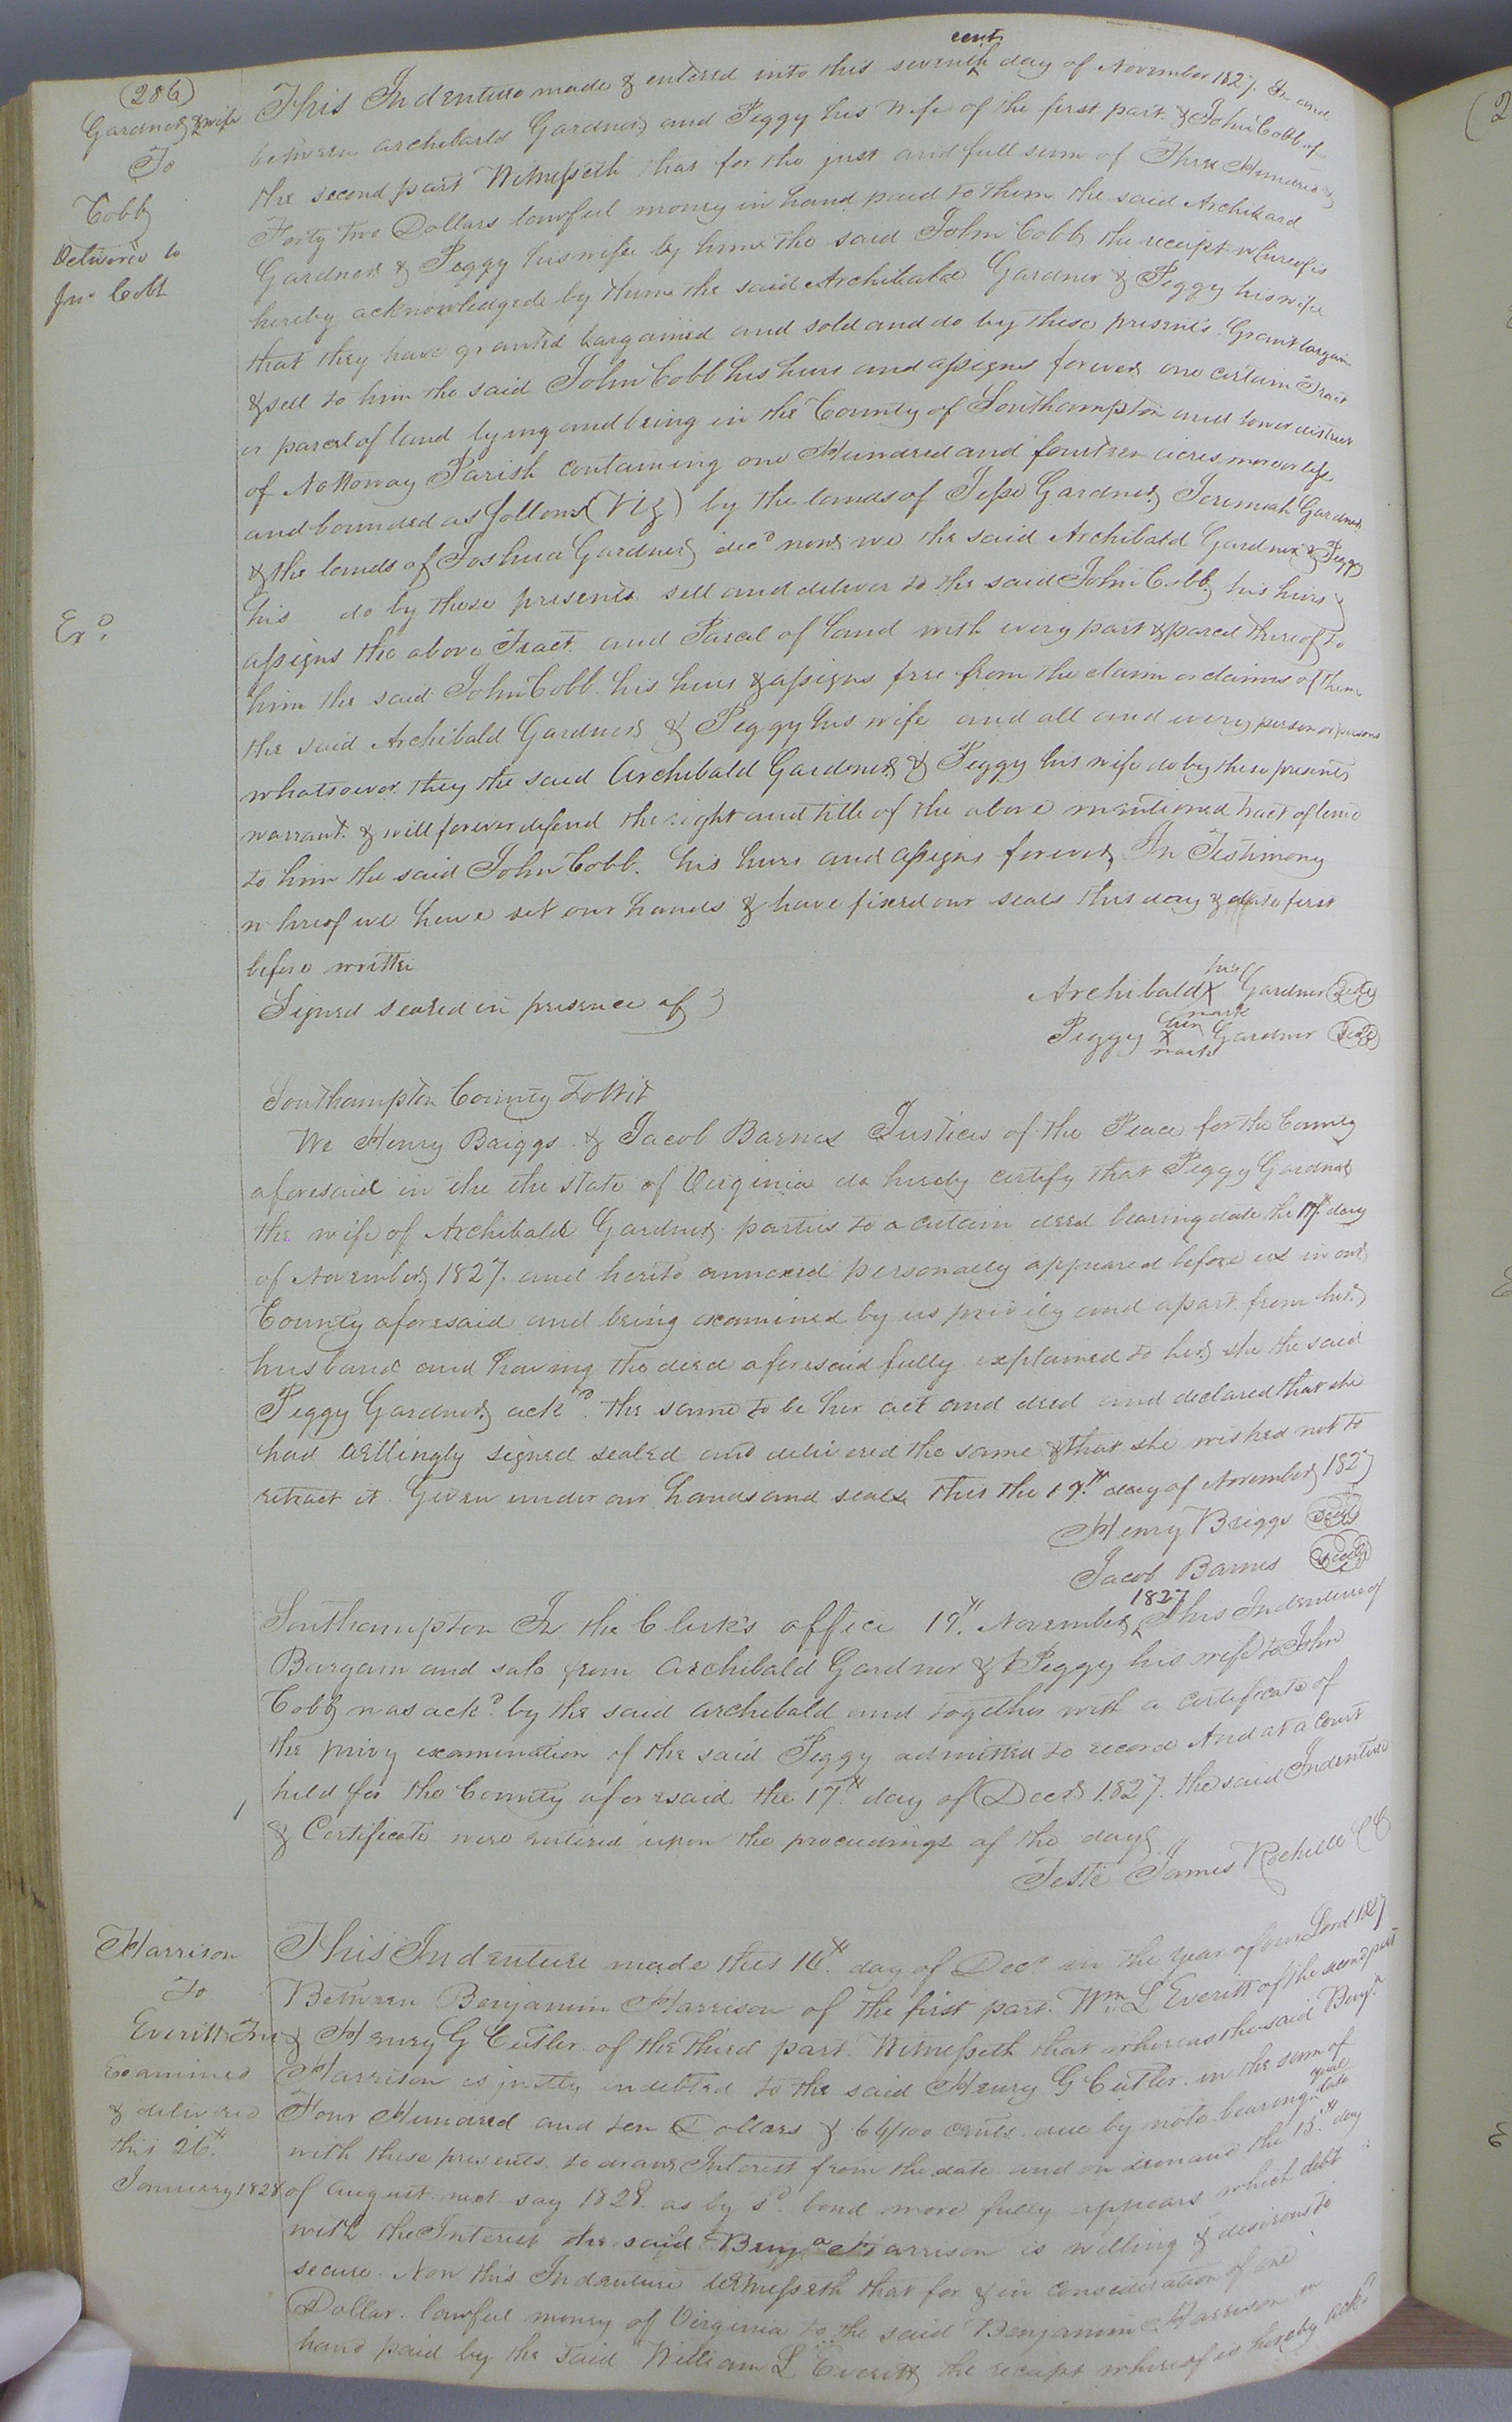 (286)
Gardner & wife
To
Cobb
Delivered to
Jno Cobb
Exd.
This Indenture made & entered into this seventeenth day of November 1827. In and
between Archibald Gardner and Peggy his Wife of the first part & John Cobb of
the second part Witnesseth that for the just and full sum of Three Hundred &
Forty two Dollars lawful money in hand paid to them the said Archibard
Gardner & Peggy his wife by him the said John Cobb the receipt whereof is
hereby acknowledgede by them the said Archibald Gardner & Peggy his wife
that they have granted bargained and sold and do by these presents Grant bargain
& sell to him the said John Cobb his heirs and assigns forever one certain Tract
or parcel of land lying and being in the County of Southampton and lower district
of Nottoway Parish containing one Hundred and fourteen acres more or less
and bounded as follows (Viz) by the lands of Jesse Gardner Jeremiah Gardner
& the lands of Joshua Gardner decd now we the said Archibald Gardner & Peggy
his do by these presents sell and deliver to the said John Cobb his heirs &
assigns the above Tract and Parcel of Land with every part & parcel thereof to
him the said John Cobb his heirs & assigns free from the claim or claims of them
the said Archibald Gardner & Peggy his wife and all and every person or persons
whatsoever they the said Archibald Gardner & Peggy his wife do by these presents
warrant & will forever defend the right and title of the above mentioned tract of land
to him the said John Cobb. his heirs and assigns forever In Testimony
whereof we have set our hands & have fixed our seals this day & date first
before written
Signed sealed in presence of }
Archibald his X mark Gardner (Seal)
Peggy her X mark Gardner (Seal)
Southampton County To Wit
We Henry Briggs & Jacob Barnes Justices of the Peace for the County
aforesaid in the the state of Virginia do hereby certify that Peggy Gardner
the wife of Archibald Gardner parties to a certain deed bearing date the 17th day
of November 1827. and hereto annexed personally appeared before us in our
County aforesaid and being examined by us privily and apart from her
husband and having the deed aforesaid fully explained to her she the said
Peggy Gardner ackd. the same to be her act and deed and declared that she
had willingly signed sealed and delivered the same & that she wished not to
retract it Given under our hands and seals this the 17th day of November 1827
Henry Briggs (Seal)
Jacob Barnes (Seal)
Southampton In the Clerk's office 19th November 1827 This Indenture of
Bargain and sale from Archibald Gardner & Peggy his wife to John
Cobb was ackd. by the said Archibald and together with a certificate of
the privy examination of the said Peggy admitted to record And at a Court
held for the County aforesaid the 17th day of Decr 1827. the said Indenture
& Certificate were entered upon the proceedings of the day
Teste James Rochelle CC
Harrison
To
Everitt Tru
Examined
& delivered
this 26th
January 1828
This Indenture made this 14th day of Decr in the year of our Lord 1827
Between Benjamin Harrison of the first part. Wm. L Everitt of the second part
& Henry G Cutler of the Third part. Witnesseth that whereas the said Benjn
Harrison is justly indebted to the said Henry G Cutler in the sum of
Four Hundred and ten Dollars & 64/100 cents due by note bearing equal date
with these presents to draw Interest from the date and on demand the 15th day
of August next say 1828. as by sd. bond more fully appears which debt
with the Interest the said Benja Harrison is willing & desirous to
secure. Now this Indenture Witnesseth that for & in Consideration of one
Dollar. lawful money of Virginia to the said Benjamin Harrison in
hand paid by the said William L Everitt the receipt whereof is hereby ackd